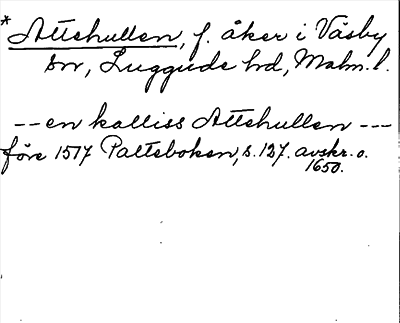 * Attehullen, f. åker i Väsby
sn, Luggude hd, Malm. l.
-- en kalliss Attehullen ---
före 1517 Palteboken, s. 127. avskr. o.
1650.